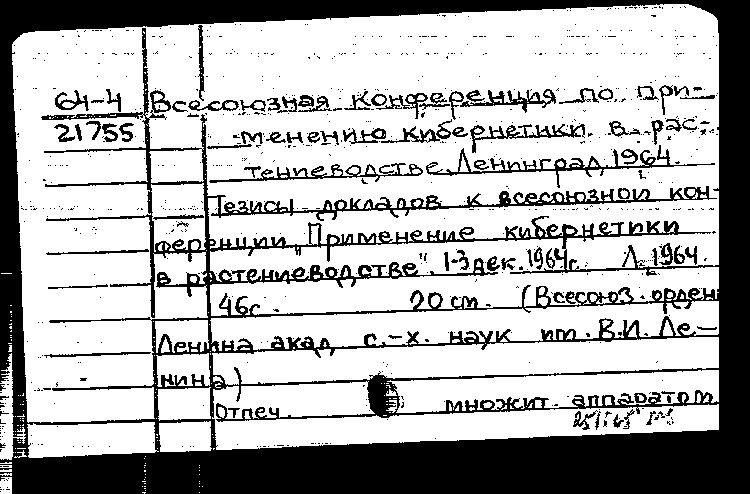 64-4 Всесоюзная конференция по при-
21755 менению кибернетики в рас-
тениеводстве. Ленинград, 1964.
Тезисы докладов к всесоюзной кон-
ференции "Применение кибернетики
в растениеводстве". 1-3 дек. 1964г. Л. 1964.
46с. 20 см. (Всесоюз. орден
Ленина акад. с.-х. наук им. В.И. Ле-
нина)
Отпеч. множит. аппаратом